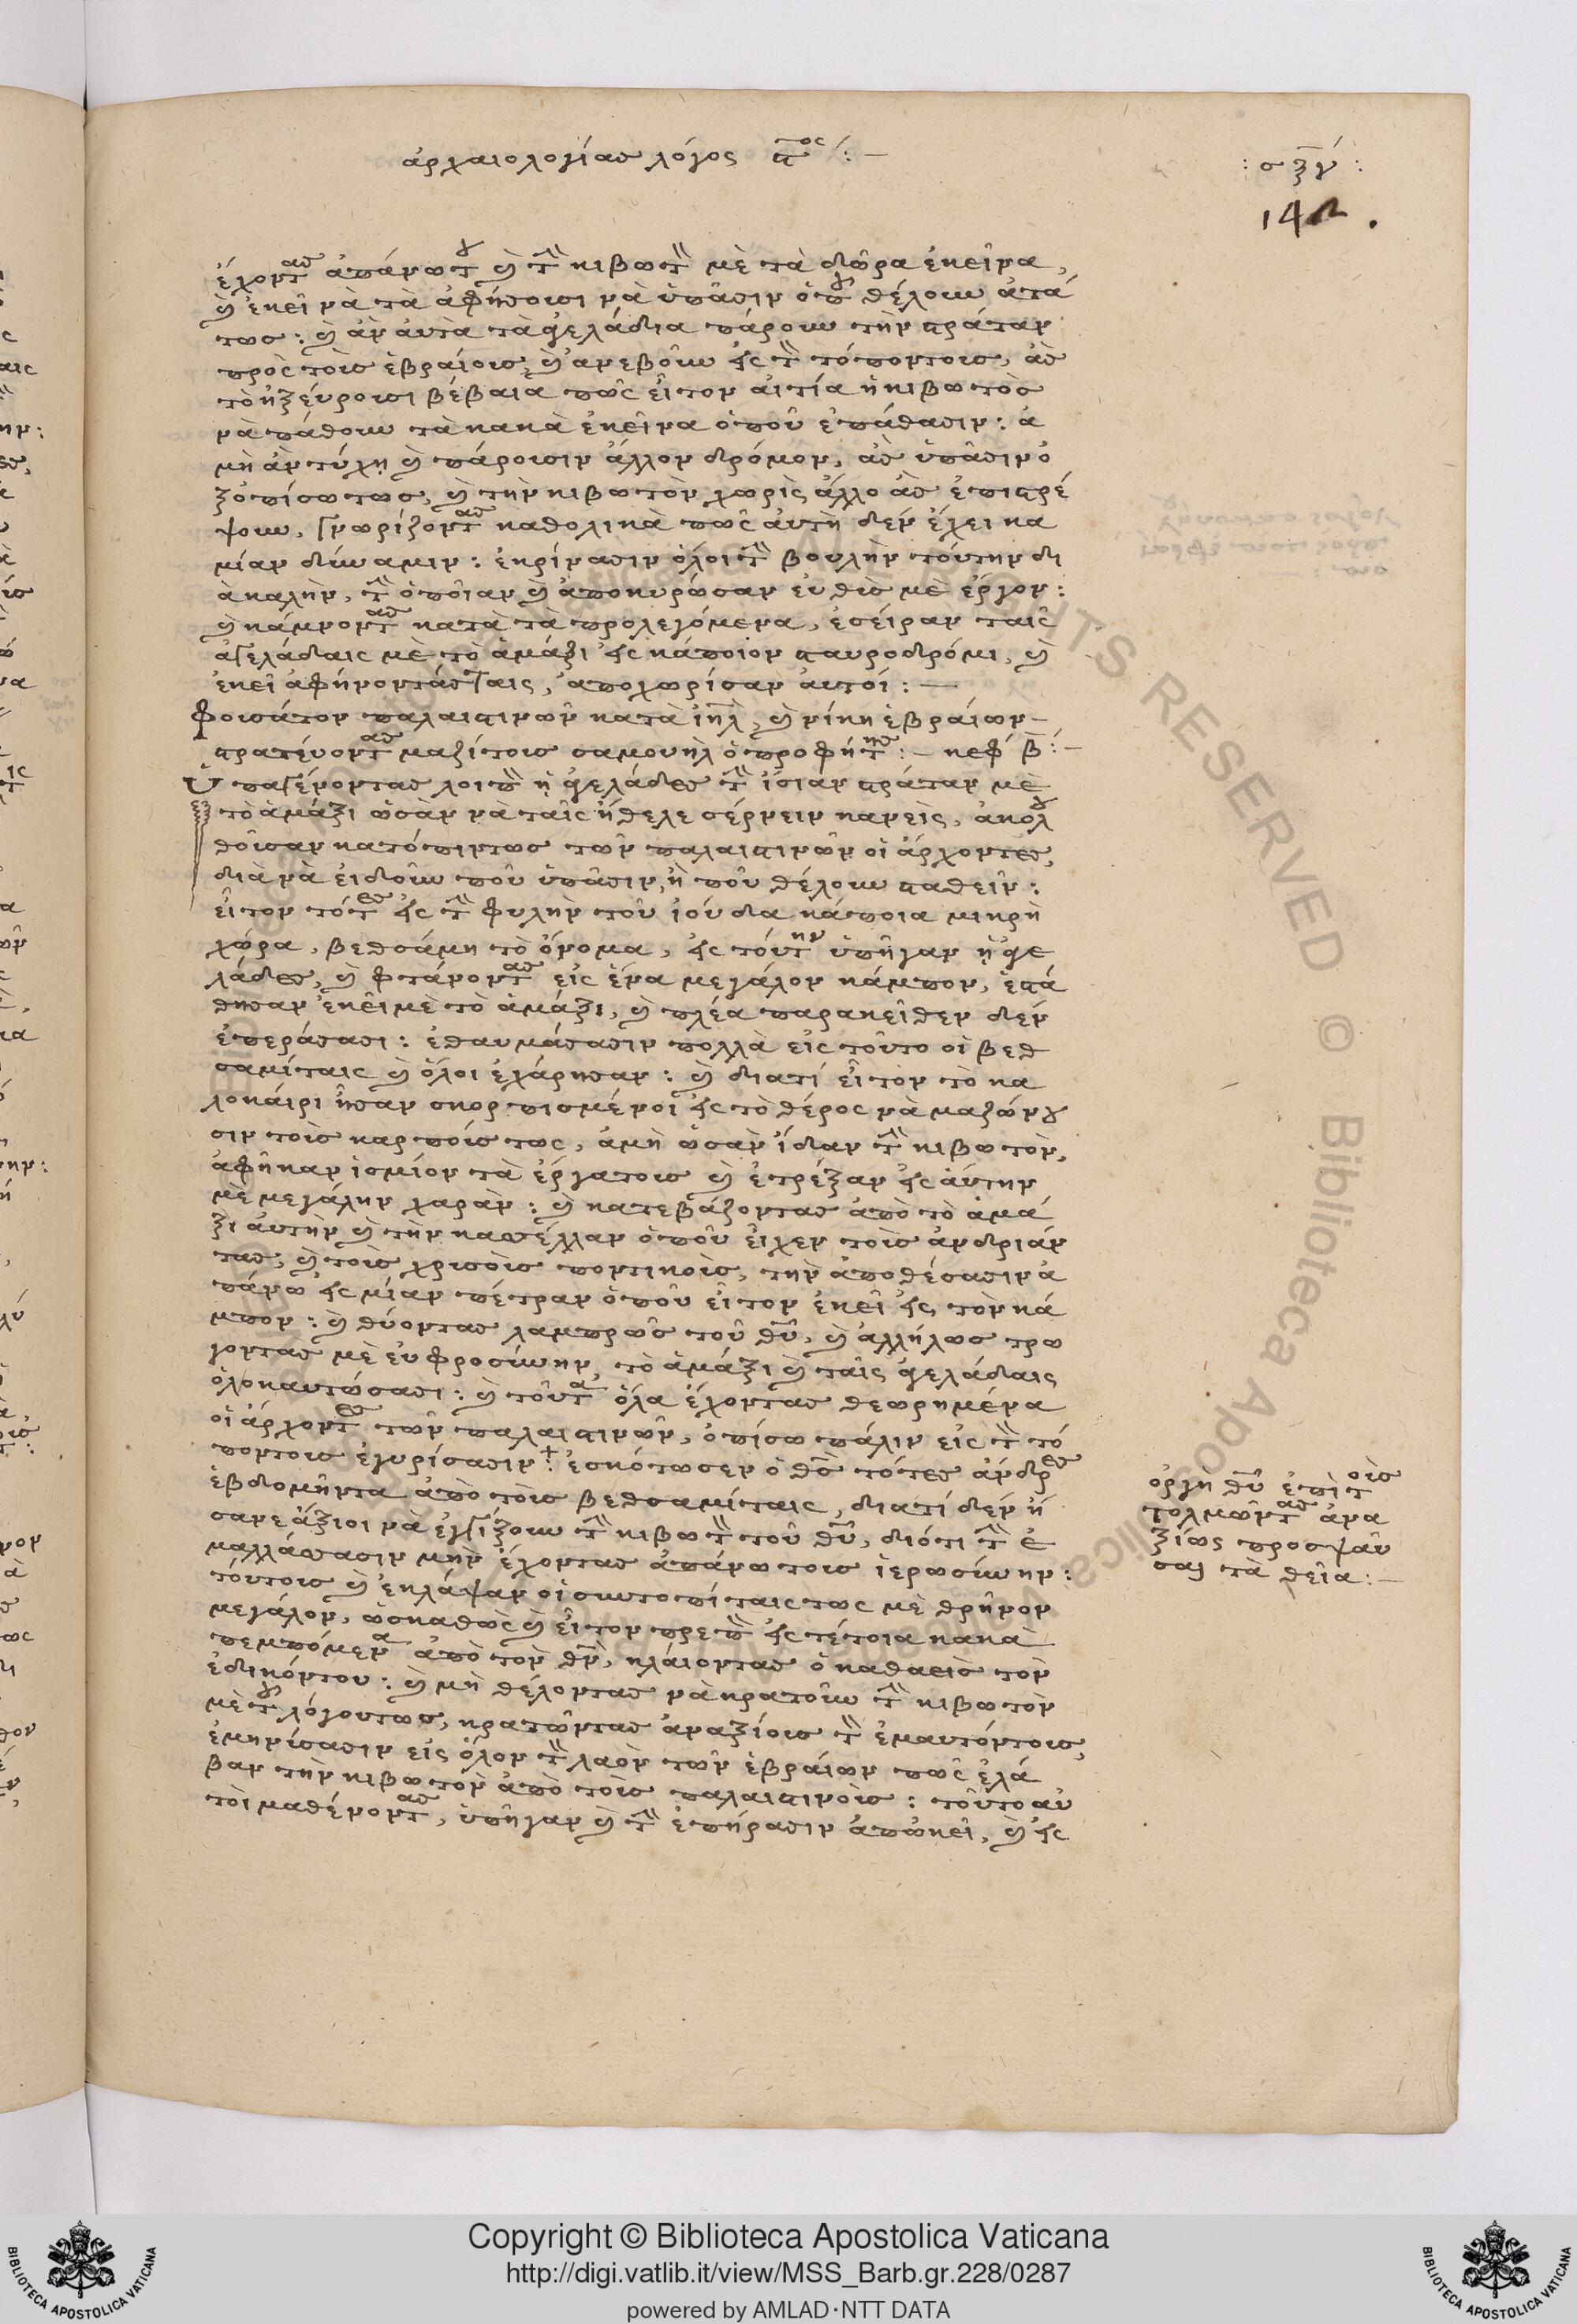 ἀρχαιολογίας λόγος ϛ´ος :—
: σξγ´ :
142.
ἔχοντας ἀπάνω του καὶ τὴν κιβωτὸν μὲ τὰ δῶρα ἐκεῖνα,
καὶ ἐκεῖ νὰ τὰ ἀφήσουσι νὰ ὑπᾶσιν ὅπου θέλουν ἀτά
τως: καὶ ἂν ἀυτὰ τὰ γελάδια πάρουν τὴν στράταν
πρὸς τοὺς ἑβραίους, καὶ ἀνεβοῦν εἰς τὸν τόπον τους, ἂς
τὸ ἠξεύρουσι βέβαια πῶς εἶτον αἰτία ἡ κιβωτὸς
νὰ πάθουν τὰ κακὰ ἐκεῖνα ὁποῦ ἐπάθασιν: ἀ
μὴ ἂν τύχη καὶ πάρουσιν ἄλλον δρόμον, ἂς ὑπᾶσιν ὀ
ξοπίσω τως, καὶ τὴν κιβωτὸν χωρὶς ἄλλο ἂς ἐπιστρέ
ψουν, γνωρίζοντας καθολικὰ πῶς ἀυτὴ δὲν ἔχει κα
μίαν δύναμιν: ἐκρίνασιν ὅλοι τὴν βουλὴν τούτην δι
ὰ καλὴν, τὴν ὁποῖαν καὶ ἀποκυρῶσαν εὐθὺς μὲ ἔργον:
καὶ κάμνοντας κατὰ τὰ προλεγόμενα, ἐσείραν ταῖς
ἀγελάδαις μὲ τὸ ἁμάξι εἰς κάποιον σταυροδρόμι, καὶ
ἐκεῖ ἀφήνοντάς ταις, ἀποχωρίσαν ἀυτοί :—
Φουσάτον παλαιστινῶν κατὰ ἰηλ, καὶ νίκη ἑβραίων—
στρατεύοντας μαζί τους σαμουὴλ ὁ προφήτης :— κεφ β´ :—
Ὑπαγένοντας λοιπὸν ἡ γελάδες τὴν ἴσιαν στράταν μὲ
τὸ ἁμάξι ὡσὰν νὰ ταῖς ἤθελε σέρνειν κανεὶς, ἀκολου
θοῦσαν κατόπιν τως τῶν παλαιστινῶν οἱ ἄρχοντες,
διὰ νὰ εἰδοῦν ποῦ ὑπᾶσιν, ἢ ποῦ θέλουν σταθεῖν:
εἶτον τότες εἰς τὴν φυλὴν τοῦ ἰούδα κάποια μικρὴ
χώρα, βεθσάμη τὸ ὄνομα, εἰς τούτην ὑπῆγαν ἡ γε
λάδες, καὶ φτάνοντας εἰς ἕνα μεγάλον κάμπον, ἐστά
θησαν ἐκεῖ μὲ τὸ ἁμάξι, καὶ πλέα παρακεῖθεν δὲν
ἐπεράσασι: ἐθαυμάσασιν πολλὰ εἰς τοῦτο οἱ βεθ
σαμίταις καὶ ὅλοι ἐχάρησαν: καὶ διατί εἶτον τὸ κα
λοκαίρι ἦσαν σκορπισμένοι εἰς τὸ θέρος νὰ μαζώνου
σιν τοὺς καρποὺς τως, ἀμὴ ὡσὰν ἴδαν τὴν κιβωτὸν,
ἀφῆκαν ἰσμίον τὰ ἔργα τους καὶ ἐτρέξαν εἰς ἀύτην
μὲ μεγάλην χαρὰν: καὶ κατεβάζοντας ἀπὸ τὸ ἁμά
ξι ἀυτὴν καὶ τὴν κασέλλαν ὁποῦ εἶχεν τοὺς ἀνδριάν
τας, καὶ τοὺς χρισοὺς ποντικοὺς, τὴν ἀποθέσασιν ἀ
πάνω εἰς μίαν πέτραν ὁποῦ εἶτον ἐκεῖ εἰς τὸν κά
μπον: καὶ θύοντας λαμπρῶς τοῦ θῦ, καὶ ἀλλήλως τρω
γοντας μὲ εὐφροσύνην, τὸ ἁμάξι καὶ ταῖς γελάδαις
ὁλοκαυτώσασι: καὶ τοῦτα ὅλα ἔχοντας θεωρημένα
οἱ ἄρχοντες τῶν παλαιστινῶν, ὀπίσω πάλιν εἰς τὸν τό
πον τους ἐγυρίσασιν: ἐσκότωσεν ὁ θς τότες ἄνδρες
ἑβδομῆντα ἀπὸ τοὺς βεθσαμίταις, διατί δὲν ἤ
σανε ἄξιοι νὰ ἐγγίξουν τὴν κιβωτὸν τοῦ θῦ, διότι τὴν ἐ
μαλλάσασιν μὴν ἔχοντας ἀπάνω τους ἱερωσύνην:
τούτους καὶ ἐκλάψαν οἱ συντοπίταις τως μὲ θρῆνον
μεγάλον, ὡσκαθὼς καὶ εἶτον πρεπὸν εἰς τέτοια κακὰ
πεμπόμενα ἀπὸ τὸν θν, κλαίοντας ὁ καθαεὶς τὸν
ἐδικόντου: καὶ μὴ θέλοντας νὰ κρατοῦν τὴν κιβωτὸν
μὲ τοῦ λόγου τως, κρατῶντας ἀναξίους τὸν ἐμαυτόν τους,
ἐμηνύσασιν εἰς ὅλον τὸν λαὸν τῶν ἑβραίων πῶς ἐλά
βαν τὴν κιβωτὸν ἀπὸ τοὺς παλαιστινοὺς: τοῦτο αὐ
τοὶ μαθένοντας, ὑπῆγαν καὶ τὴν ἐπήρασιν ἀπὸ κεῖ, καὶ εἰς
ὀργὴ θῦ ἐπὶ τοὺς
τολμῶντας ἀνα
ξίως προσψαῦ
σαι τὰ θεῖα :—
Copyright © Biblioteca Apostolica Vaticana
http://digi.vatlib.it/view/MSS_Barb.gr.228/0287
powered by AMLAD·NTT DATA
BIBLIOTECA APOSTOLICA VATICANA
BIBLIOTECA APOSTOLICA VATICANA